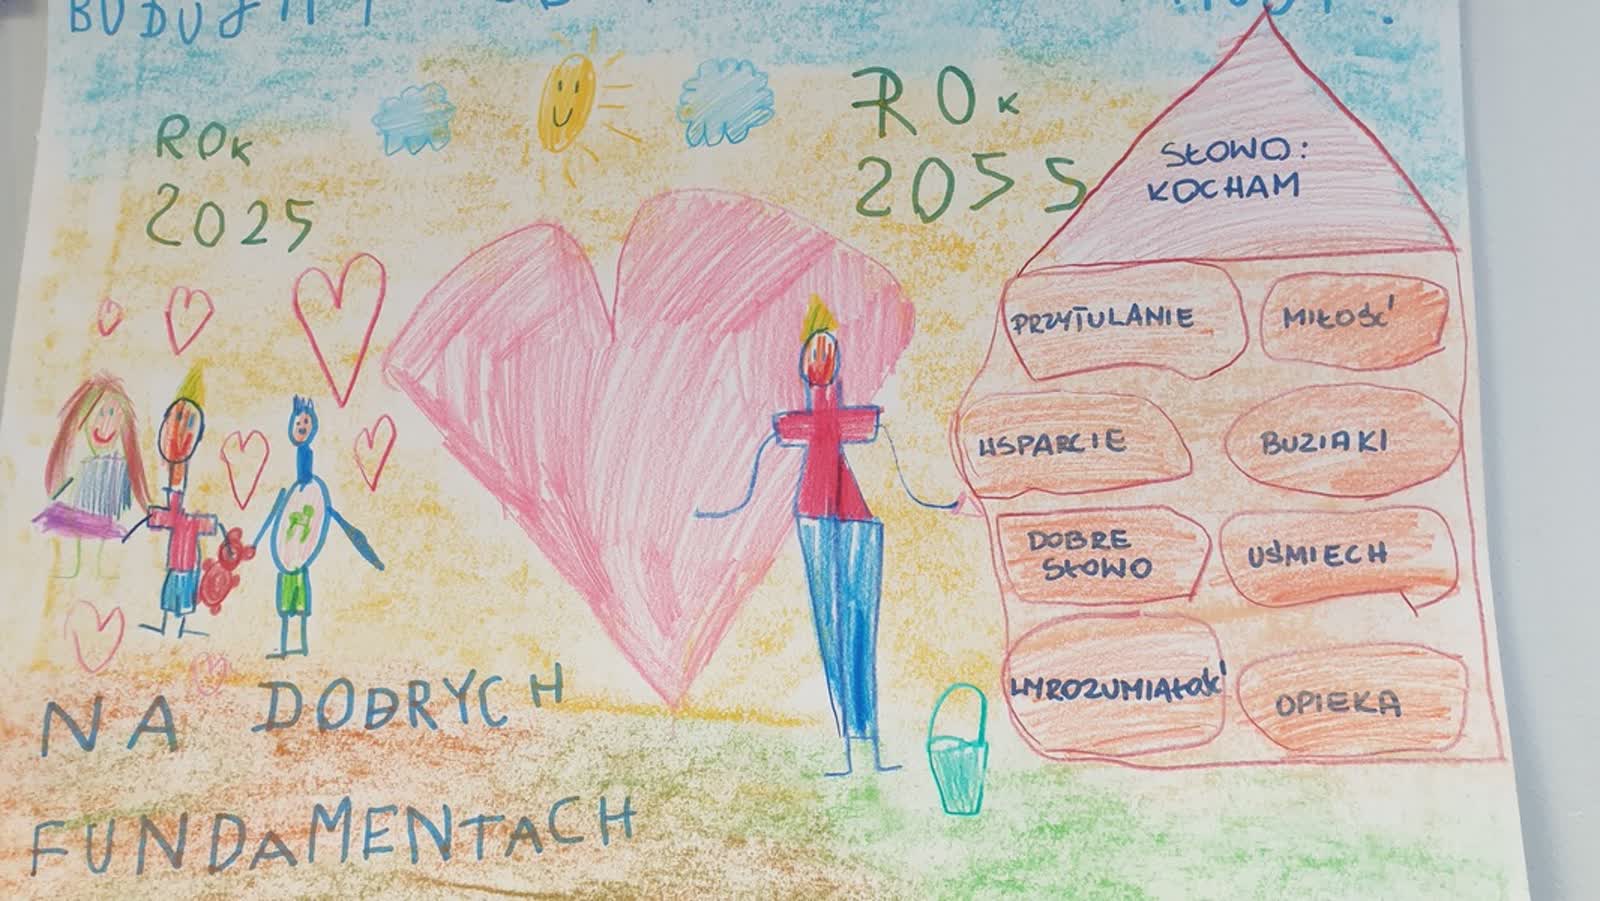 ROK
2025
ROK
2055
SŁOWO:
KOCHAM
PRZYTULANIE
MIŁOŚĆ
WSPARCIE
BUZIAKI
DOBRE
SŁOWO
UŚMIECH
WYROZUMIAŁOŚĆ
OPIEKA
NA DOBRYCH
FUNDAMENTACH